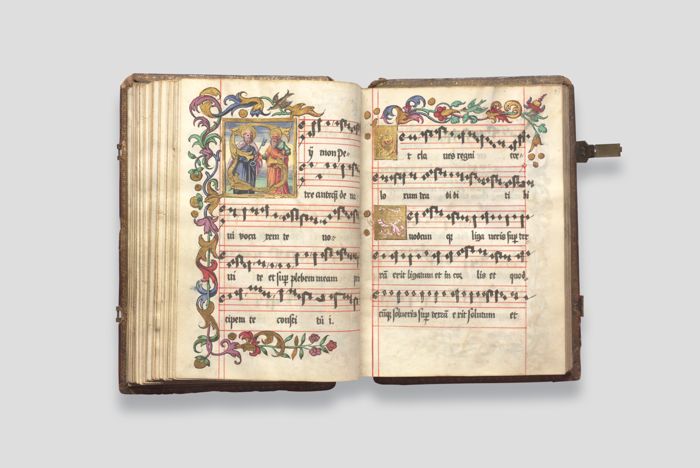 ymon Pe=
tre anteq̄ de na
ui voca rem te no=
ui te et sup̄ plebem meam
cipem te consti tu i.
t cla ues regni ce=
lo rum tra di di ti bi
uodcun qꝫ liga ueris sup̄ ter
rā erit ligatum et in ce lis et quod
cūqꝫ solueris sup̄ terrā e rit solutum et